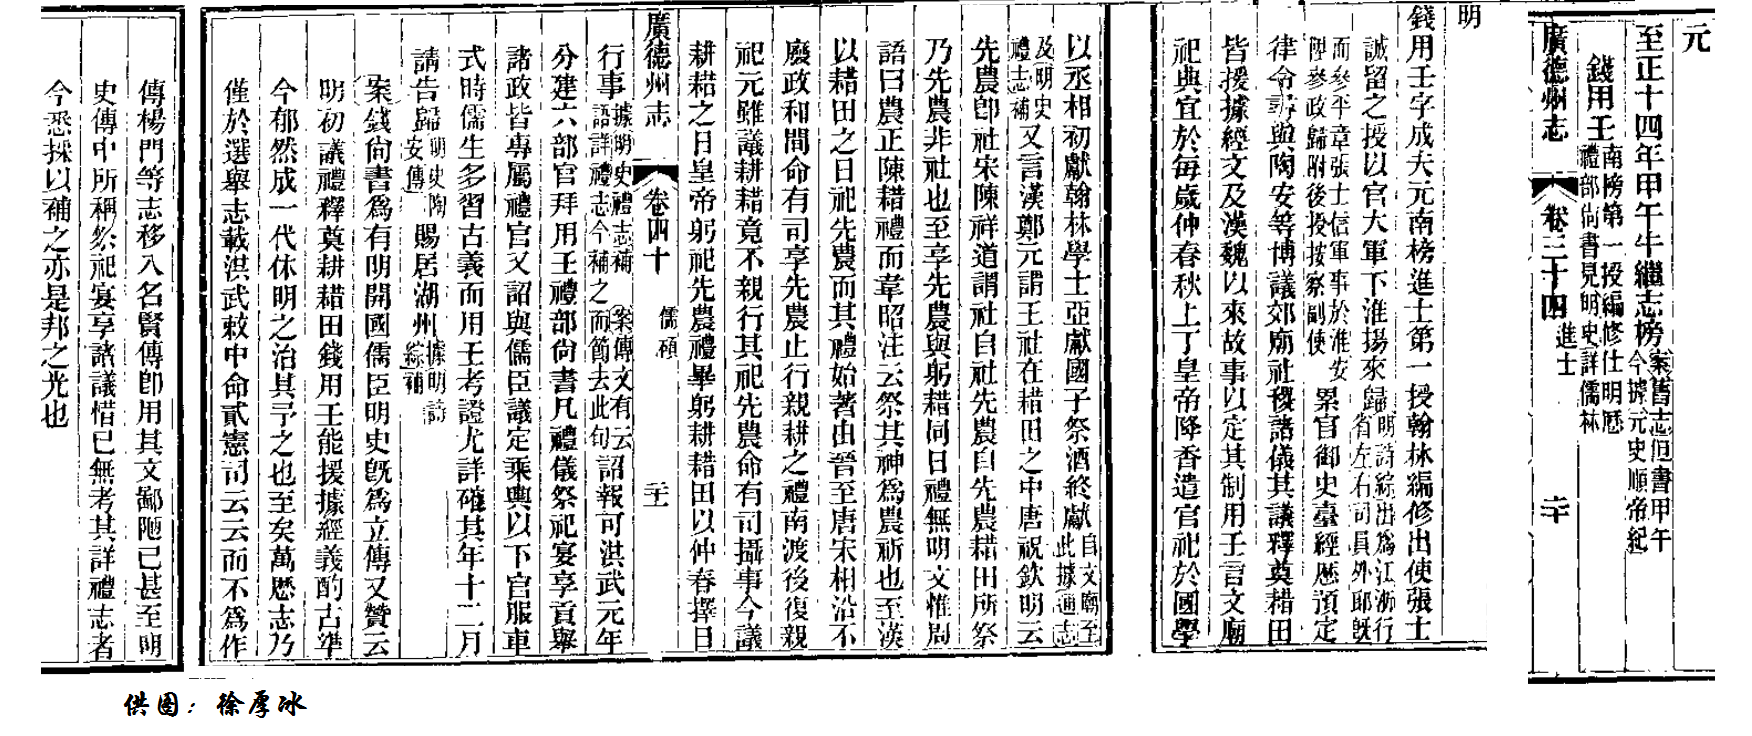 元
至正十四年甲午牛繼志榜案舊志但書甲午今據元史順帝紀
進士
錢用壬南榜第一授編修仕明歷禮部尚書見明史詳儒林
廣德州志 卷三十四 二十
明
錢用壬字成夫元南榜進士第一授翰林編修出使張士
誠留之授以官大軍下淮揚來歸明詩綜出為江浙行省左右司員外郎旣
而參平章張士信軍事於淮安陞參政歸附後授按察副使累官御史臺經歷預定
律令尋與陶安等博議郊廟社稷諸儀其議釋奠耤田
皆援據經文及漢魏以來故事以定其制用壬言文廟
祀典宜於每歲仲春秋上丁皇帝降香遣官祀於國學
以丞相初獻翰林學士亞獻國子祭酒終獻自文廟至此據通志
及明史禮志補又言漢鄭元謂王社在耤田之中唐祝欽明云
先農卽社宋陳祥道謂社自社先農自先農耤田所祭
乃先農非社也至享先農與躬耤同日禮無明文惟周
語曰農正陳耤禮而韋昭注云祭其神為農祈也至漢
以耤田之日祀先農而其禮始著由晉至唐宋相沿不
廢政和間命有司享先農止行親耕之禮南渡後復親
祀元雖議耕耤竟不親行其祀先農命有司攝事今議
耕耤之日皇帝躬祀先農禮畢躬耕耤田以仲春擇日
廣德州志 卷四十 儒碩 二十
行事據明史禮志補語詳禮志今補之案傳文有云而簡去此句詔報可洪武元年
分建六部官拜用壬禮部尚書凡禮儀祭祀宴享貢舉
諸政皆專屬禮官又詔與儒臣議定乘輿以下官服車
式時儒生多習古義而用壬考證尤詳確其年十二月
請告歸明史陶安傳賜居湖州據明詩綜補
案錢尚書為有明開國儒臣明史旣為立傳又贊云
明初議禮釋奠耕耤田錢用壬能援據經義酌古準
今郁然成一代休明之治其予之也至矣萬歷志乃
僅於選舉志載洪武敕中命貳憲司云云而不為作
傳楊門等志移入名賢傳卽用其文鄙陋已甚至明
史傳中所稱祭祀宴享諸議惜已無考其詳禮志者
今悉採以補之亦是邦之光也
供图：徐厚冰